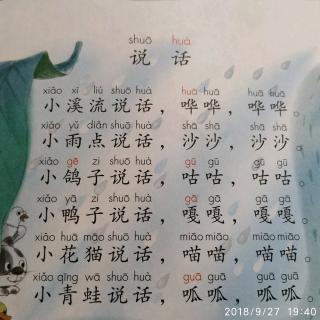 shuō huà
说 话
xiǎo xī liú shuō huà huā huā huā huā
小溪流说话，哗哗，哗哗。
xiǎo yǔ diǎn shuō huà shā shā shā shā
小雨点说话，沙沙，沙沙。
xiǎo gē zi shuō huà gū gū gū gū
小鸽子说话，咕咕，咕咕。
xiǎo yā zi shuō huà gā gā gā gā
小鸭子说话，嘎嘎，嘎嘎。
xiǎo huā māo shuō huà miāo miāo miāo miāo
小花猫说话，喵喵，喵喵。
xiǎo qīng wā shuō huà guā guā guā guā
小青蛙说话，呱呱，呱呱。
2018/9/27 19:40